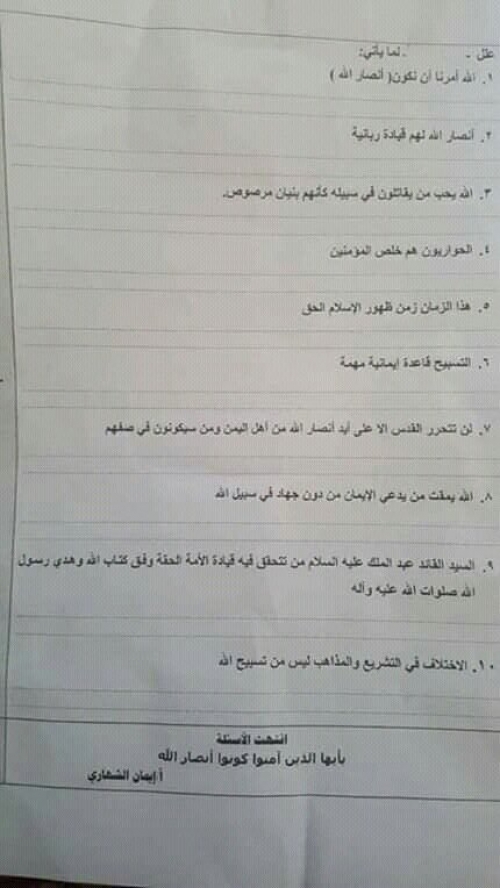 علل - . لما يأتي:
١. الله أمرنا أن نكون( أنصار الله )
٢. أنصار الله لهم قيادة ربانية
٣. الله يحب من يقاتلون في سبيله كأنهم بنيان مرصوص.
٤. الحواريون هم خلص المؤمنين
٥. هذا الزمان زمن ظهور الإسلام الحق
٦. التسبيح قاعدة إيمانية مهمة
٧. لن تتحرر القدس الا على أيد أنصار الله من أهل اليمن ومن سيكونون في صفهم
٨. الله يمقت من يدعي الإيمان من دون جهاد في سبيل الله
٩. السيد القائد عبد الملك عليه السلام من تتحقق فيه قيادة الأمة الحقة وفق كتاب الله وهدي رسول
الله صلوات الله عليه وآله
١٠. الاختلاف في التشريع والمذاهب ليس من تسبيح الله
انتهت الأسئلة
يأيها الذين آمنوا كونوا أنصار الله
أ.إيمان الشهاري